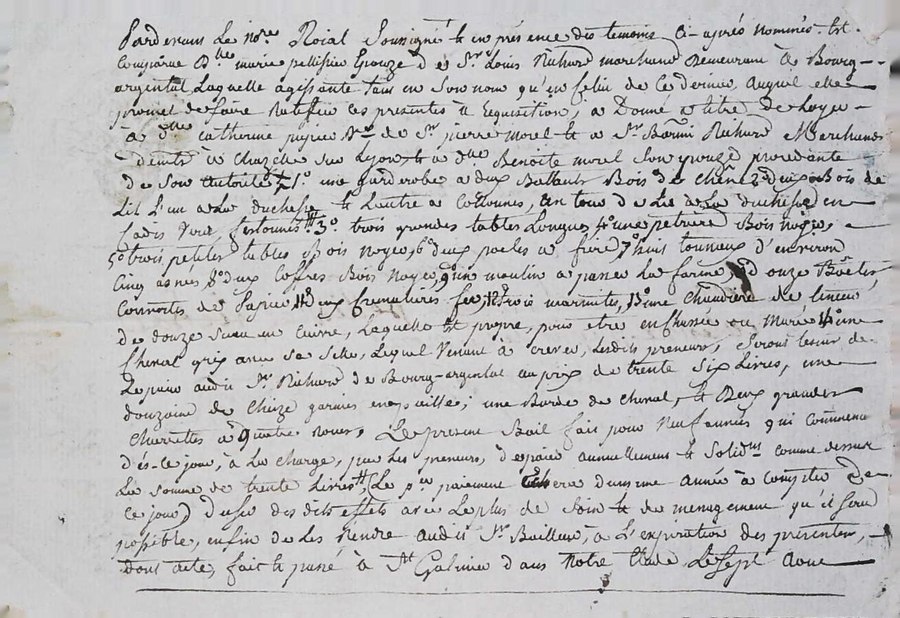 Pardevans Le no.re Roial Soussigné & en présence des temoins Ci-après nommés. Est
Comparue D.lle marie pellissier Epouze de S.r Louis Richard marchand Demeurant à Bourg-
argental Laquelle agissante Tant en Son nom qu'en Celui de Ce dernier auquel elle
promet de faire Ratifier Ces presentes à Requisition, a Donné a titre de Loyer
à d.lle Catherine V.ve de S.r pierre morel & a S.r Richard Marchand
a Chazelle sur Lyon & a d.lle Benoite morel Son Epouze procedante
de Son autorité, 1.o une garderobe a deux Battants Bois de Chêne, 2.o deux Bois de
Lit L'un a La duchesse & Lautre a Colonnes, un tour de Lit a La duchesse en
Cadis Vert, 3.o trois grandes tables Longues, 4.o une petriere Bois Noyer,
5.o trois petites tables Bois Noyer, 6.o deux poeles a frire, 7.o huit tonneaux d'environ
Cinq asnés, 8.o deux Coffres Bois Noyer, 9.o un moulin a passer La farine, douze
de Sapin, 11.o deux Cremalières fer, 12.o trois marmites, 13.o une Chaudière de
de douze Seaux en Cuivre, Laquelle Est propre, pour être enchassée ou Murée, 14.o une
Cheval gris avec Sa Selle, Lequel Venant à Crever, Lesdits preneurs, Seront tenus de
Le payer audit S.r Richard de Bourg-argental au prix de trente Six Livres, une
douzaine de Cheize garnies en paille; une Barde de Cheval, & Deux grandes
Charettes a quatre roues, Le present Bail fait pour Neuf années qui Commence
dès-ce jour, à La Charge, par Les preneurs, de payer annuellement & Solid.nt Comme dessus
La Somme de trente Livres, (Le p.er paiement dans une année à Compter de
Ce jour) d'user des dits effets avec Le plus de Soin & de menagement qu'il Sera
possible, enfin de Les Rendre audit S.r Bailleur, à L'expiration des presentes,
dont acte, fait & passé à S.t Galmier dans Notre Etude Le Sept Aout